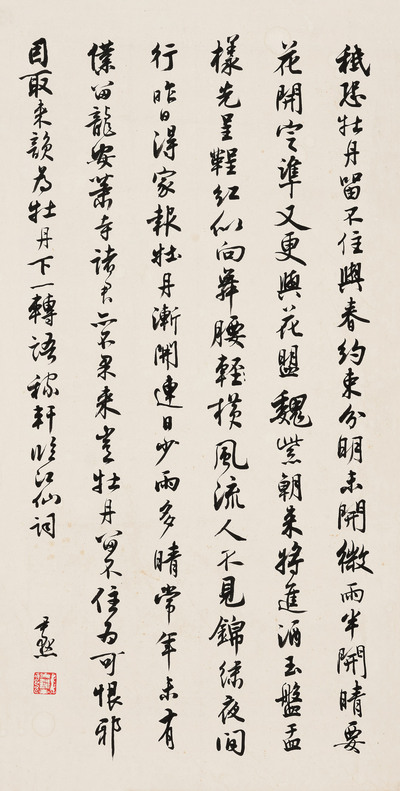 秪恐牡丹留不住與春約束分明未開微雨半開晴要
花開定準又更與花盟魏紫朝來將進酒玉盤盂
樣先呈鞓紅似向舞腰輕橫風流人不見錦繡夜間
行昨日得家報牡丹漸開連日少雨多晴常年未有
僕留龍安蕭寺諸君亦不果來豈牡丹留不住為可恨邪
因取來韻為牡丹下一轉語稼軒臨江仙詞
尹默